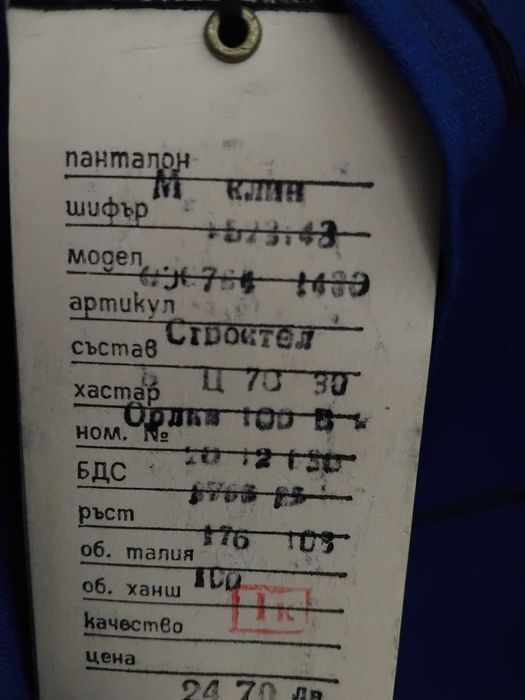 панталон
М клин
шифър
модел
1430
артикул
Строител
състав
В Ц 70 30
хастар
Орлин 100 В
ном. №
10 12 130
БДС
ръст
176 103
об. талия
100
об. ханш
1к
качество
цена
24 70 лв